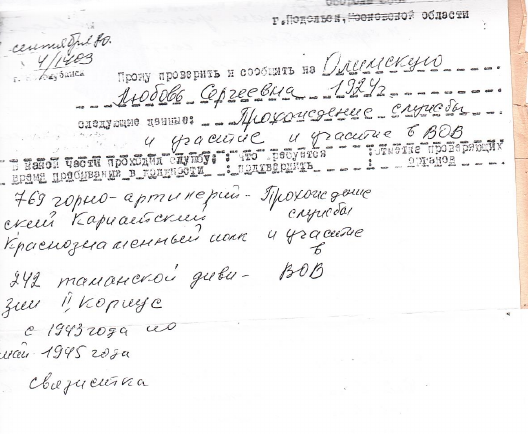 г.Подольск, Московской области
сентября 80.
4/1403
Прошу проверить и сообщить на Олимскую
Любовь Сергеевна 1924г
следующие данные: Прохождение службы
и участие и участие в ВОВ
в какой части проходил службу, : что требуется : отметка проверяющих
время пребывания в должности : подтвердить : органов
769 горно-артилерий- Прохождение
ский Кариатский службы
Краснознаменный полк и участие
в
242 таманской диви- ВОВ
зии II, Корпус
с 1943 года по
май 1945 года
связистка